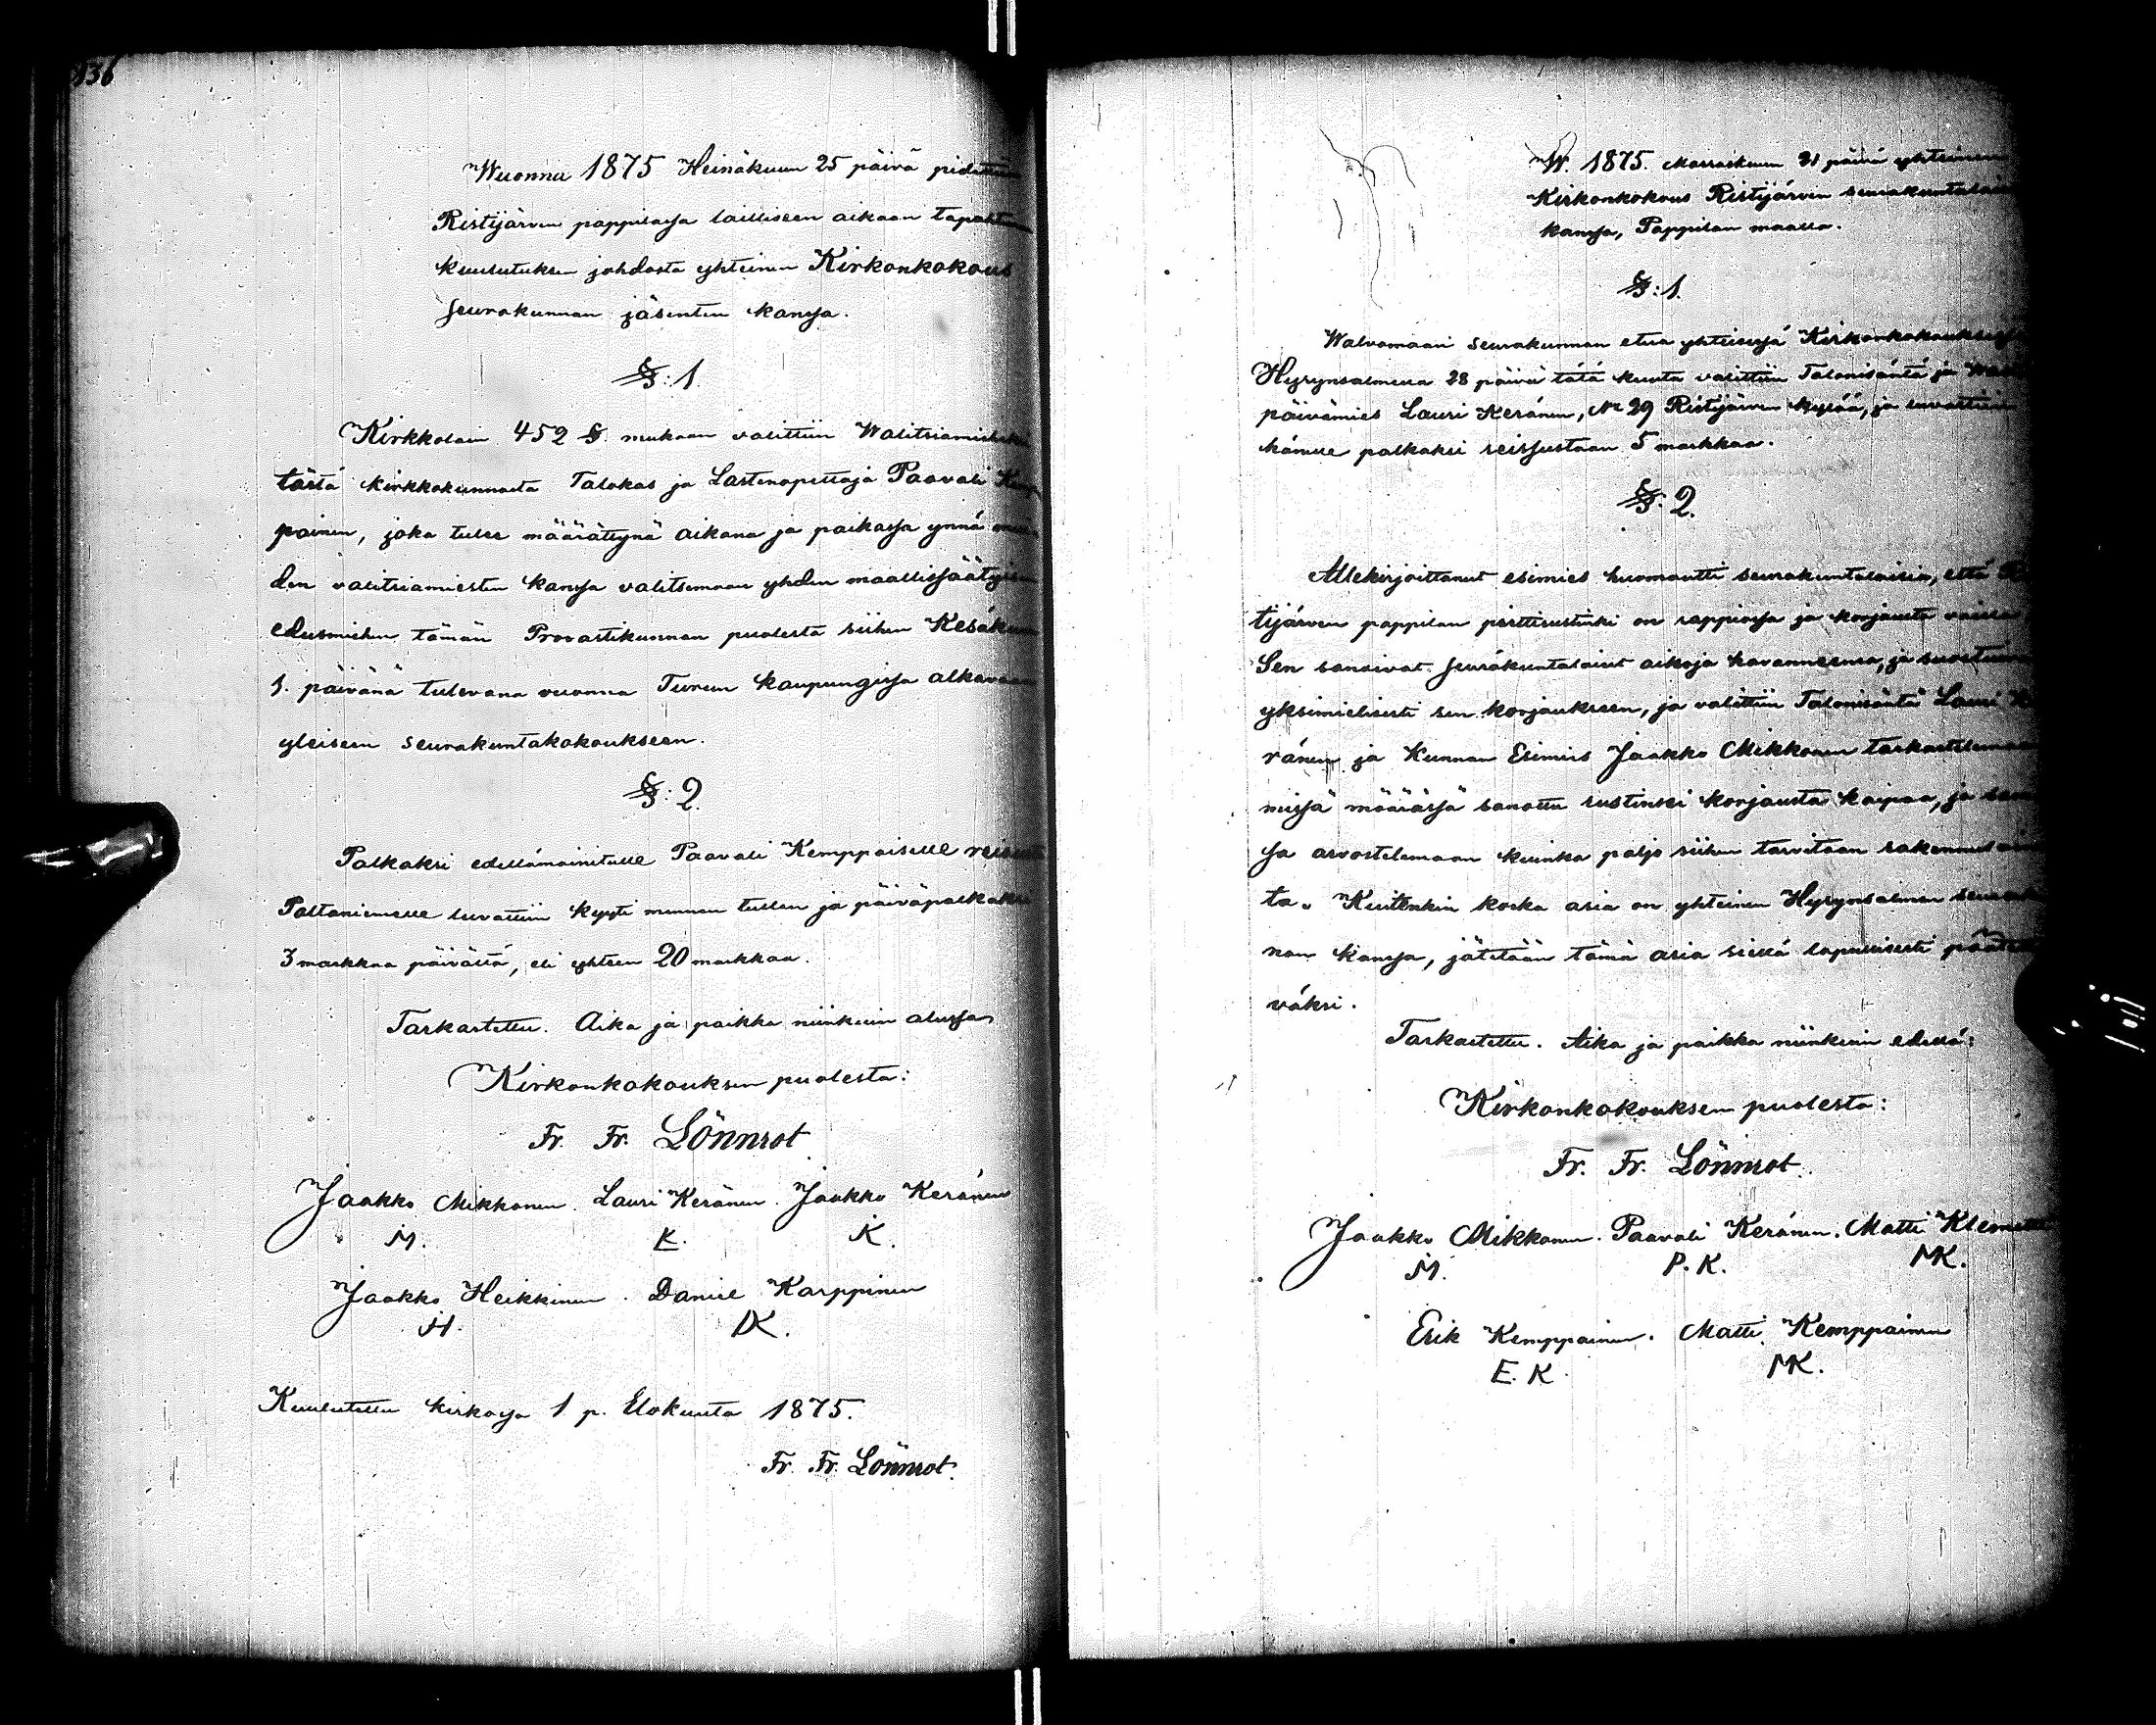 136
Wuonna 1875 Heinäkuun 25 päivä pidettiin
Ristijärven pappilassa lailliseen aikaan tapahtuneen
kuulutuksen johdosta yhteinen Kirkonkokous
seurakunnan jäsenten kanssa.
§: 1.
Kirkkolain 452 §. mukaan valittiin Walitsiamieheksi
tästä kirkkokunnasta Talokas ja Lastenopettaja Paavali Kemp
painen, joka tulee määrättynä aikana ja paikassa ynnä mui
den valitsiamiesten kanssa valitsemaan yhden maallissäätyisen
edusmiehen tämän Provastikunnan puolesta siihen Kesäkuun
1. päivänä tulevana vuonna Turun kaupungissa alkavaan
yleiseen seurakuntakokoukseen.
§: 2.
Palkaksi edellämainitulle Paavali Kemppaiselle
Paltaniemelle luvattiin kyyti mennen tullen ja päiväpalkaksi
3 markkaa päivältä, eli yhteen 20 markkaa.
Tarkastettu. Aika ja paikka niinkuin alussa
Kirkonkokouksen puolesta:
Fr. Fr. Lönnrot.
Jaakko Mikkonen. Lauri Keränen. Jaakko Keränen
J.M. L.K. J.K.
Jaakko Heikkinen. Daniel Karppinen
J.H. DK.
Kuulutettu kirkossa 1 p. Elokuuta 1875.
Fr. Fr. Lönnrot.
W. 1875. Marraskuun 21 päivä yhteinen
Kirkonkokous Ristijärven seurakuntalaisten
kanssa, Pappilan maalla.
§: 1.
Walvomaan seurakunnan etua yhteisessä Kirkonkokouksessa
Hyrynsalmella 28 päivä tätä kuuta valittiin Talonisäntä ja
päivämies Lauri Keränen, No 29 Ristijärven kylää, ja luvattiin
hänelle palkaksi reissustaan 5 markkaa.
§: 2.
Allekirjoittanut esimies huomautti seurakuntalaisia, että Ris
tijärven pappilan pirttirustinki on rappiossa ja korjausta vailla
Sen sanoivat seurakuntalaiset aikoja havanneensa, ja suostuivat
yksimielisesti sen korjaukseen, ja valittiin Talonisäntä Lauri Ke
ränen ja Kunnan Esimies Jaakko Mikkonen tarkastelemaan
missä määrässä sanottu rustinki korjausta kaipaa, ja
ja arvostelemaan kuinka paljo siihen tarvitaan rakennusainei
ta. Kuitenkin koska asia on yhteinen Hyrynsalmen seurakun
nan kanssa, jätetään tämä asia siellä lopullisesti päätettä
väksi.
Tarkastettu. Aika ja paikka niinkuin edellä:
Kirkonkokouksen puolesta:
Fr. Fr. Lönnrot.
Jaakko Mikkonen. Paavali Keränen. Matti Klemetti
J.M. P.K. MK.
Erik Kemppainen. Matti Kemppainen
E.K. MK.